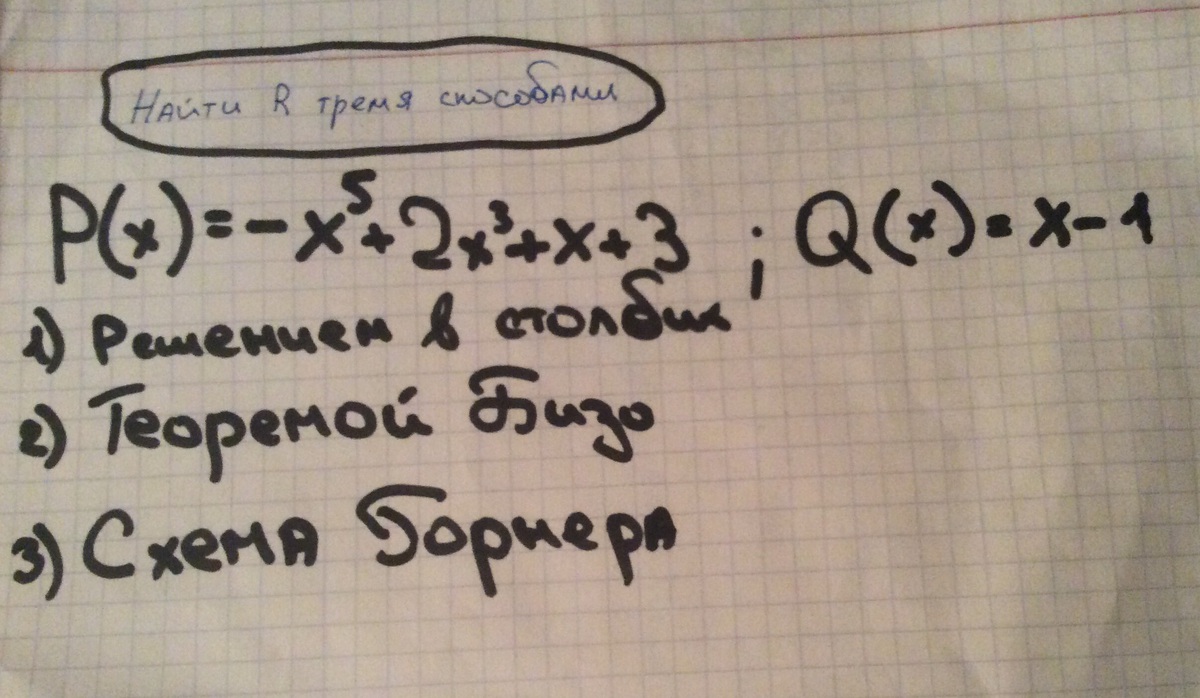 Найти R тремя способами
P(x)=-x⁵+2x³+x+3 ; Q(x)=x-1
1) Решением в столбик
2) Теоремой Бизо
3) Схема Борнера